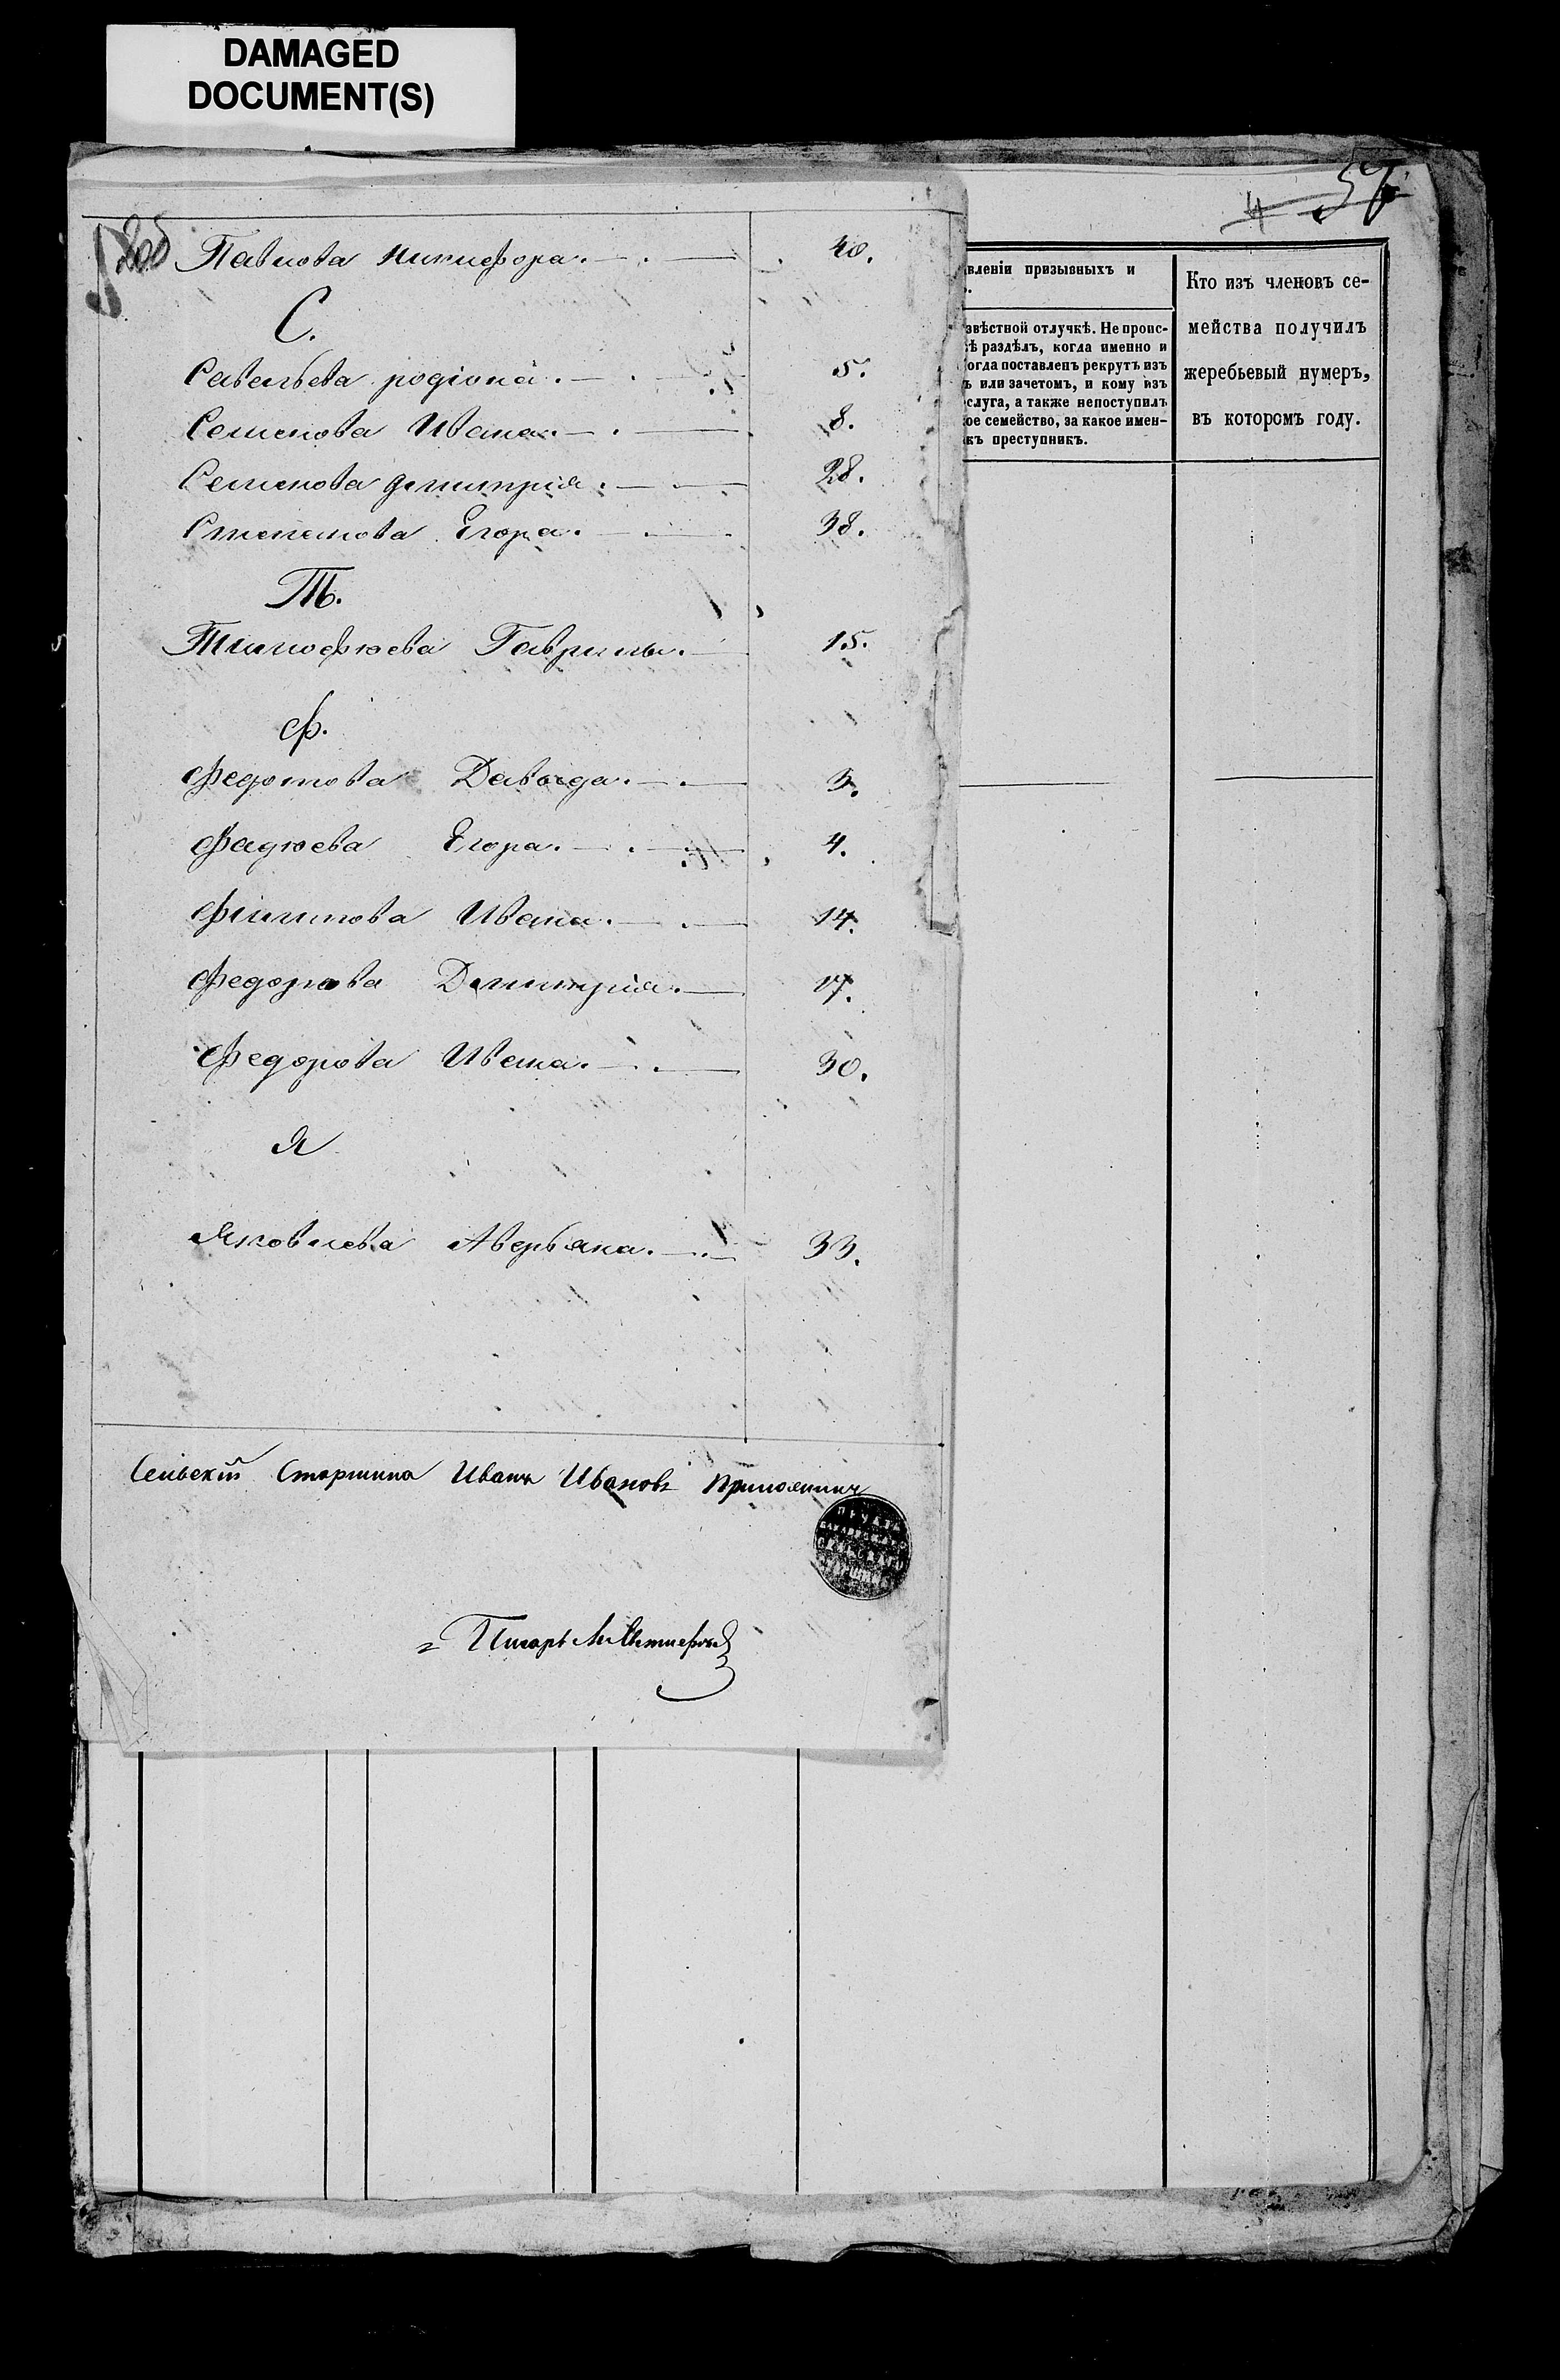 DAMAGED
DOCUMENT(S)
57
4
205
Павлова Никифора. 40.
С.
Савельева родіона. 5.
Семенова Ивана. 8.
Семенова дмитрія. 28.
Степанова Егора. 38.
Т.
Тимофѣева Гаврилы. 15.
Ф.
Федотова Давыда. 3.
Фадѣева Егора. 4.
Филипова Ивана. 14.
Федорова Дмитрія. 17.
Федорова Ивана. 30.
Я
Яковлева Аверьяна. 33.
Сельскій Старшина Иванъ Ивановъ
ПЕЧАТЬ
СЕЛЬСКАГО
Писарь
вленіи призывныхъ и
звѣстной отлучкѣ. Не проис-
ѣ раздѣлъ, когда именно и
огда поставленъ рекрутъ изъ
ъ или зачетомъ, и кому изъ
слуга, а также непоступилъ
ое семейство, за какое имен-
къ преступникъ.
Кто изъ членовъ се-
мейства получилъ
жеребьевый нумеръ,
въ которомъ году.